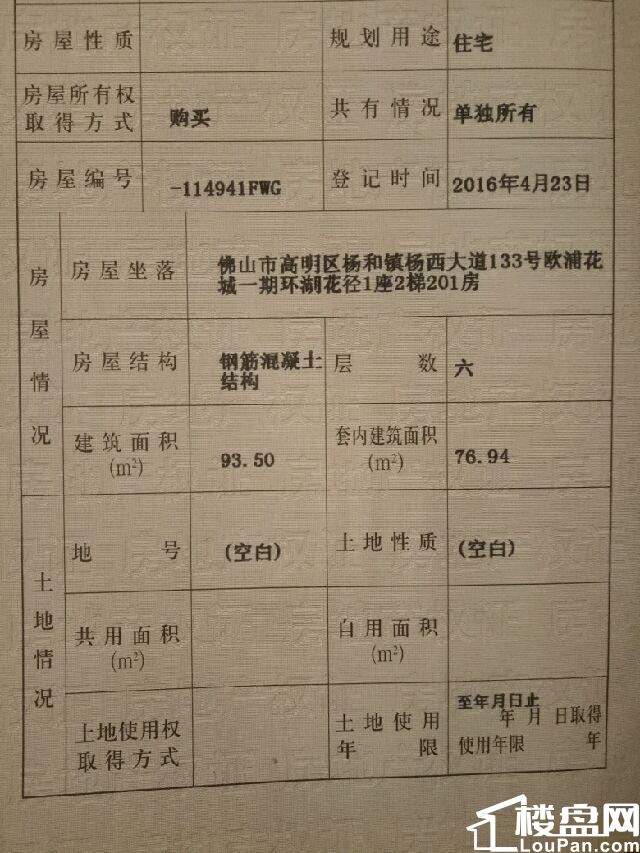 房屋性质 规划用途 住宅
房屋所有权 取得方式 购买 共有情况 单独所有
房屋编号 -114941FWG 登记时间 2016年4月23日
房屋情况
房屋坐落 佛山市高明区杨和镇杨西大道133号欧浦花
城一期环湖花径1座2梯201房
房屋结构 钢筋混凝土
结构 层数 六
建筑面积
(m²) 93.50 套内建筑面积
(m²) 76.94
土地情况
地号 (空白) 土地性质 (空白)
共用面积
(m²) 自用面积
(m²)
土地使用权
取得方式 土地使用
年限 至年月日止
年 月 日取得
使用年限 年
楼盘网
LouPan.com